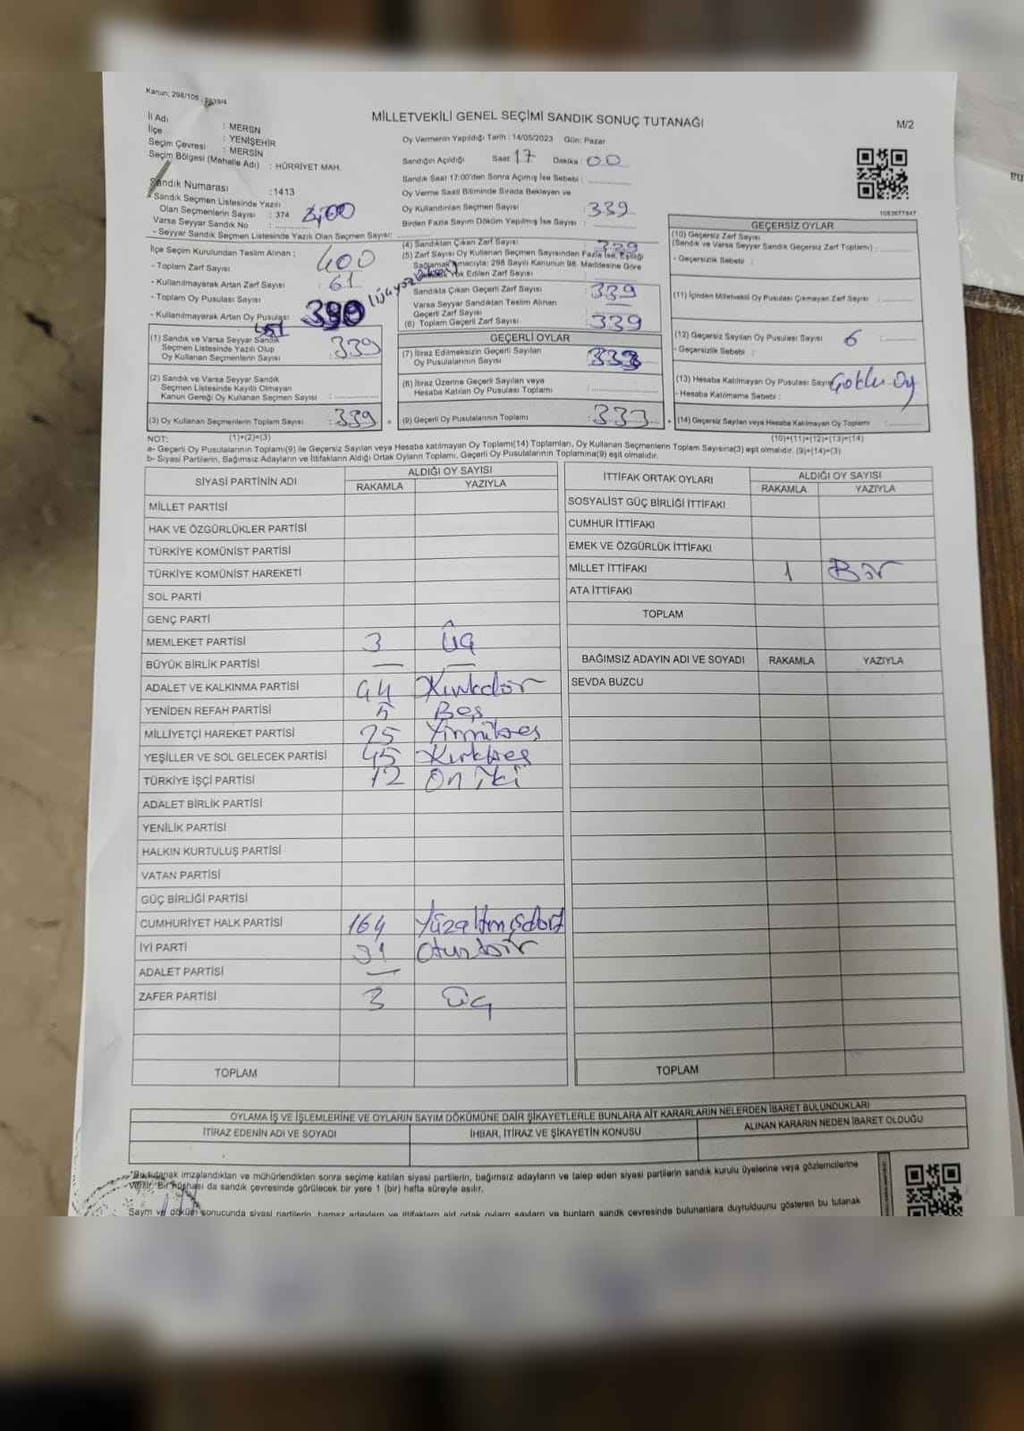 Kanun: 298/105
MİLLETVEKİLİ GENEL SEÇİMİ SANDIK SONUÇ TUTANAĞI
M/2
İl Adı : MERSİN
İlçe : YENİŞEHİR
Seçim Çevresi : MERSİN
Seçim Bölgesi (Mahalle Adı) : HÜRRİYET MAH.
Sandık Numarası : 1413
Sandık Seçmen Listesinde Yazılı
Olan Seçmenlerin Sayısı : 374
Varsa Seyyar Sandık No
- Seyyar Sandık Seçmen Listesinde Yazılı Olan Seçmen Sayısı:
Oy Vermenin Yapıldığı Tarih : 14/05/2023 Gün: Pazar
Sandığın Açıldığı Saat 17 Dakika : 00
Sandık Saat 17:00'den Sonra Açılmış İse Sebebi :
Oy Verme Saati Bitiminde Sırada Bekleyen ve
Oy Kullandırılan Seçmen Sayısı : 339
Birden Fazla Sayım Döküm Yapılmış İse Sayısı :
1083677847
İlçe Seçim Kurulundan Teslim Alınan ;
- Toplam Zarf Sayısı : 400
- Kullanılmayarak Artan Zarf Sayısı : 61
- Toplam Oy Pusulası Sayısı
- Kullanılmayarak Artan Oy Pusulası
(1) Sandık ve Varsa Seyyar Sandık
Seçmen Listesinde Yazılı Olup
Oy Kullanan Seçmenlerin Sayısı : 339
(2) Sandık ve Varsa Seyyar Sandık
Seçmen Listesinde Kayıtlı Olmayan
Kanun Gereği Oy Kullanan Seçmen Sayısı :
(3) Oy Kullanan Seçmenlerin Toplam Sayısı : 339
(4) Sandıktan Çıkan Zarf Sayısı : 339
(5) Zarf Sayısı Oy Kullanan Seçmen Sayısından Fazla İse, Eşitliği
Sağlamak Amacıyla; 298 Sayılı Kanunun 98. Maddesine Göre
Yok Edilen Zarf Sayısı
Sandıkta Çıkan Geçerli Zarf Sayısı : 339
Varsa Seyyar Sandıktan Teslim Alınan
Geçerli Zarf Sayısı
(6) Toplam Geçerli Zarf Sayısı : 339
GEÇERLİ OYLAR
(7) İtiraz Edilmeksizin Geçerli Sayılan
Oy Pusulalarının Sayısı : 333
(8) İtiraz Üzerine Geçerli Sayılan veya
Hesaba Katılan Oy Pusulası Toplamı
(9) Geçerli Oy Pusulalarının Toplamı : 333
GEÇERSİZ OYLAR
(10) Geçersiz Zarf Sayısı
(Sandık ve Varsa Seyyar Sandık Geçersiz Zarf Toplamı) :
- Geçersizlik Sebebi :
(11) İçinden Milletvekili Oy Pusulası Çıkmayan Zarf Sayısı :
(12) Geçersiz Sayılan Oy Pusulası Sayısı : 6
- Geçersizlik Sebebi :
(13) Hesaba Katılmayan Oy Pusulası Sayısı
- Hesaba Katılmama Sebebi :
(14) Geçersiz Sayılan veya Hesaba Katılmayan Oy Toplamı :
NOT: (1)+(2)=(3) (10)+(11)+(12)+(13)=(14)
a- Geçerli Oy Pusulalarının Toplamı(9) ile Geçersiz Sayılan veya Hesaba katılmayan Oy Toplamı(14) Toplamları, Oy Kullanan Seçmenlerin Toplam Sayısına(3) eşit olmalıdır. (9)+(14)=(3)
b- Siyasi Partilerin, Bağımsız Adayların ve İttifakların Aldığı Ortak Oyların Toplamı, Geçerli Oy Pusulalarının Toplamına(9) eşit olmalıdır.
SİYASİ PARTİNİN ADI ALDIĞI OY SAYISI
RAKAMLA YAZIYLA
MİLLET PARTİSİ
HAK VE ÖZGÜRLÜKLER PARTİSİ
TÜRKİYE KOMÜNİST PARTİSİ
TÜRKİYE KOMÜNİST HAREKETİ
SOL PARTİ
GENÇ PARTİ
MEMLEKET PARTİSİ 3 Üç
BÜYÜK BİRLİK PARTİSİ —
ADALET VE KALKINMA PARTİSİ 44 Kırkdör
YENİDEN REFAH PARTİSİ 5 Beş
MİLLİYETÇİ HAREKET PARTİSİ 25 Yirmibeş
YEŞİLLER VE SOL GELECEK PARTİSİ 45 Kırkbeş
TÜRKİYE İŞÇİ PARTİSİ 12 On iki
ADALET BİRLİK PARTİSİ
YENİLİK PARTİSİ
HALKIN KURTULUŞ PARTİSİ
VATAN PARTİSİ
GÜÇ BİRLİĞİ PARTİSİ
CUMHURİYET HALK PARTİSİ 164 Yüzaltmışdört
İYİ PARTİ 31 Otuzbir
ADALET PARTİSİ —
ZAFER PARTİSİ 3 Üç
TOPLAM
İTTİFAK ORTAK OYLARI ALDIĞI OY SAYISI
RAKAMLA YAZIYLA
SOSYALİST GÜÇ BİRLİĞİ İTTİFAKI
CUMHUR İTTİFAKI
EMEK VE ÖZGÜRLÜK İTTİFAKI
MİLLET İTTİFAKI 1 Bir
ATA İTTİFAKI
TOPLAM
BAĞIMSIZ ADAYIN ADI VE SOYADI RAKAMLA YAZIYLA
SEVDA BUZCU
TOPLAM
OYLAMA İŞ VE İŞLEMLERİNE VE OYLARIN SAYIM DÖKÜMÜNE DAİR ŞİKAYETLERLE BUNLARA AİT KARARLARIN NELERDEN İBARET BULUNDUKLARI
İTİRAZ EDENİN ADI VE SOYADI İHBAR, İTİRAZ VE ŞİKAYETİN KONUSU ALINAN KARARIN NEDEN İBARET OLDUĞU
"Bu tutanak imzalandıktan ve mühürlendikten sonra seçime katılan siyasi partilerin, bağımsız adayların ve talep eden siyasi partilerin sandık kurulu üyelerine veya gözlemcilerine
verilir. Bir nüshası da sandık çevresinde görülecek bir yere 1 (bir) hafta süreyle asılır.